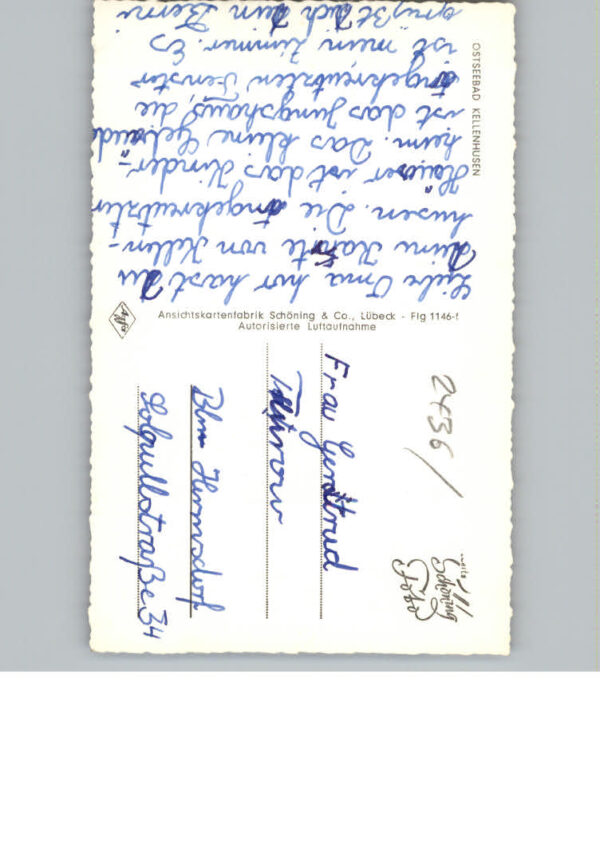 OSTSEEBAD KELLENHUSEN
Liebe Oma hir hast Du
Deine Karte von Kellen-
husen. Die angekreutzten
Häuser ist das Kinder-
heim. Das kleine Gebäude
ist das Jungshaus, die
angekreutzten Fenster
ist mein Zimmer. Es
grüßt Dich Dein Berni
Agfa
Ansichtskartenfabrik Schöning & Co., Lübeck - Flg 1146-
Autorisierte Luftaufnahme
2436/
Schöning
Foto
Frau Gertrud
Bln Hermsdorf
straße 34